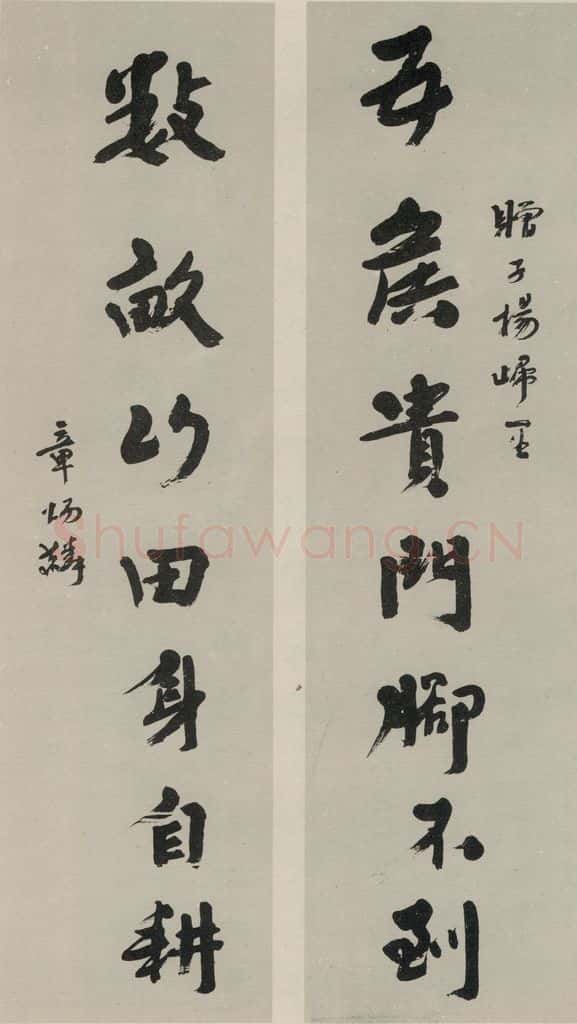 贈子楊歸里
五侯貴門腳不到
數畝山田身自耕
章炳麟
Shufawang.CN